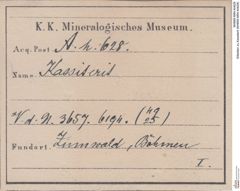 K. K. Mineralogisches Museum.
Acq. Post A. h. 628.
Name. Kassiterit
V. d. N. 3657. 6194. (49/25)
Fundort. Zinnwald, Böhmen
I.